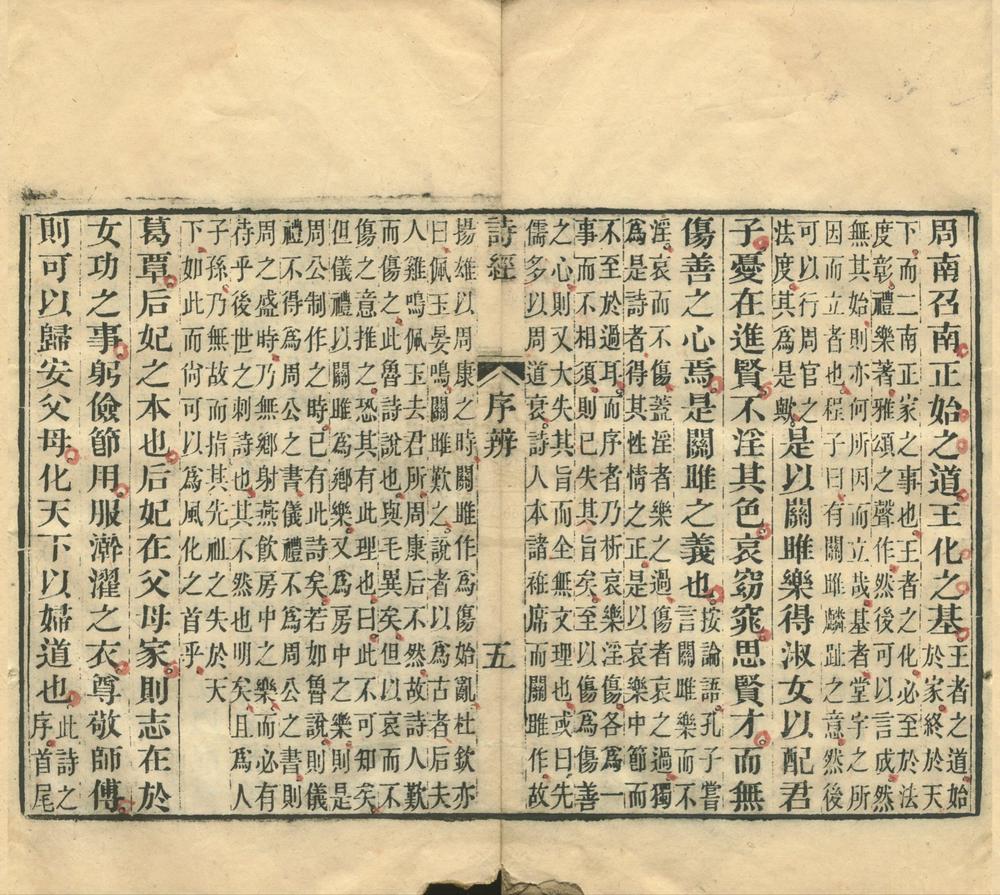 周南召南正始之道王化之基王者之道始
於家終於天
下而二南正家之事也王者之化必至於法
度彰禮樂著雅頌之聲作然後可以言成然
無其始則亦何所因而立哉基者堂宇之所
因而立者也程子曰有關雎麟趾之意然後
可以行周官之
法度其為是歟是以關雎樂得淑女以配君
子憂在進賢不淫其色哀窈窕思賢才而無
傷善之心焉是關雎之義也按論語孔子嘗
言關雎樂而不
淫哀而不傷蓋淫者樂之過傷者哀之過獨
為是詩者得其性情之正是以哀樂中節而
不至於過耳而序者乃析哀樂淫傷各為一
事而不相須則已失其旨矣至以傷為傷善
之心則又大失其旨而全無文理也或曰先
儒多以周道衰詩人本諸袵席而關雎作故
詩經 序辨 五
揚雄以周康之時關雎作為傷始亂杜欽亦
曰佩玉晏鳴關雎歎之說者以為古者后夫
人雞鳴佩玉去君所周康后不然故詩人歎
而傷之此魯詩說也與毛異矣但以哀而不
傷之意推之恐其有此理也曰此不可知矣
但儀禮以關雎為鄉樂又為房中之樂則是
周公制作之時已有此詩矣若如魯說則儀
禮不得為周公之書儀禮不為周公之書則
周之盛時乃無鄉射燕飲房中之樂而必有
待乎後世之刺詩也其不然也明矣且為人
子孫乃無故而指其先祖之失於天
下如此而尙可以為風化之首乎
葛覃后妃之本也后妃在父母家則志在於
女功之事躬儉節用服澣濯之衣尊敬師傅
則可以歸安父母化天下以婦道也此詩之
序首尾